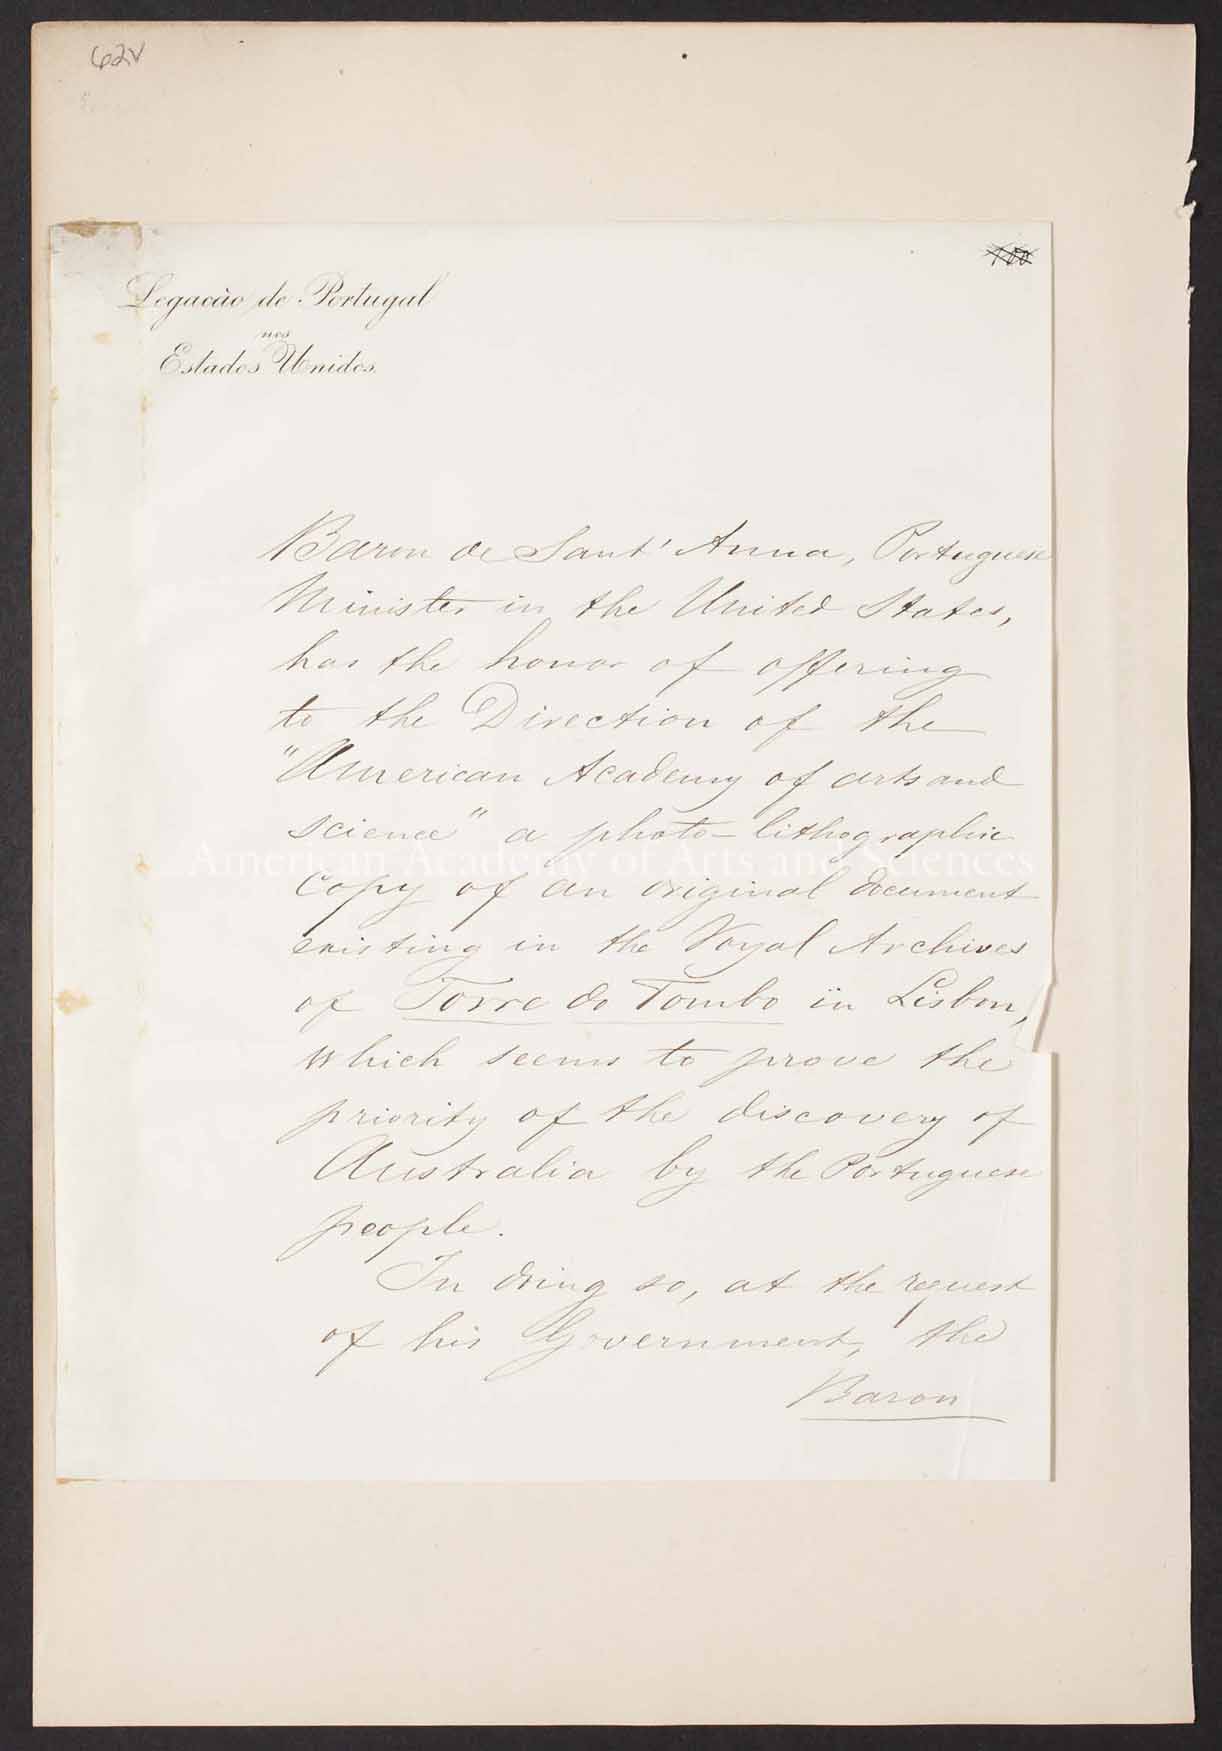 62v
Legação de Portugal
nos
Estados Unidos.
Baron de Sant' Anna, Portuguese
Minister in the United States,
has the honor of offering
to the Direction of the
"American Academy of arts and
science" a photo-lithographic
American Academy of Arts and Sciences
copy of an original document
existing in the Royal Archives
of Torre do Tombo in Lisbon,
which seems to prove the
priority of the discovery of
Australia by the Portuguese
people.
In doing so, at the request
of his Government, the
Baron